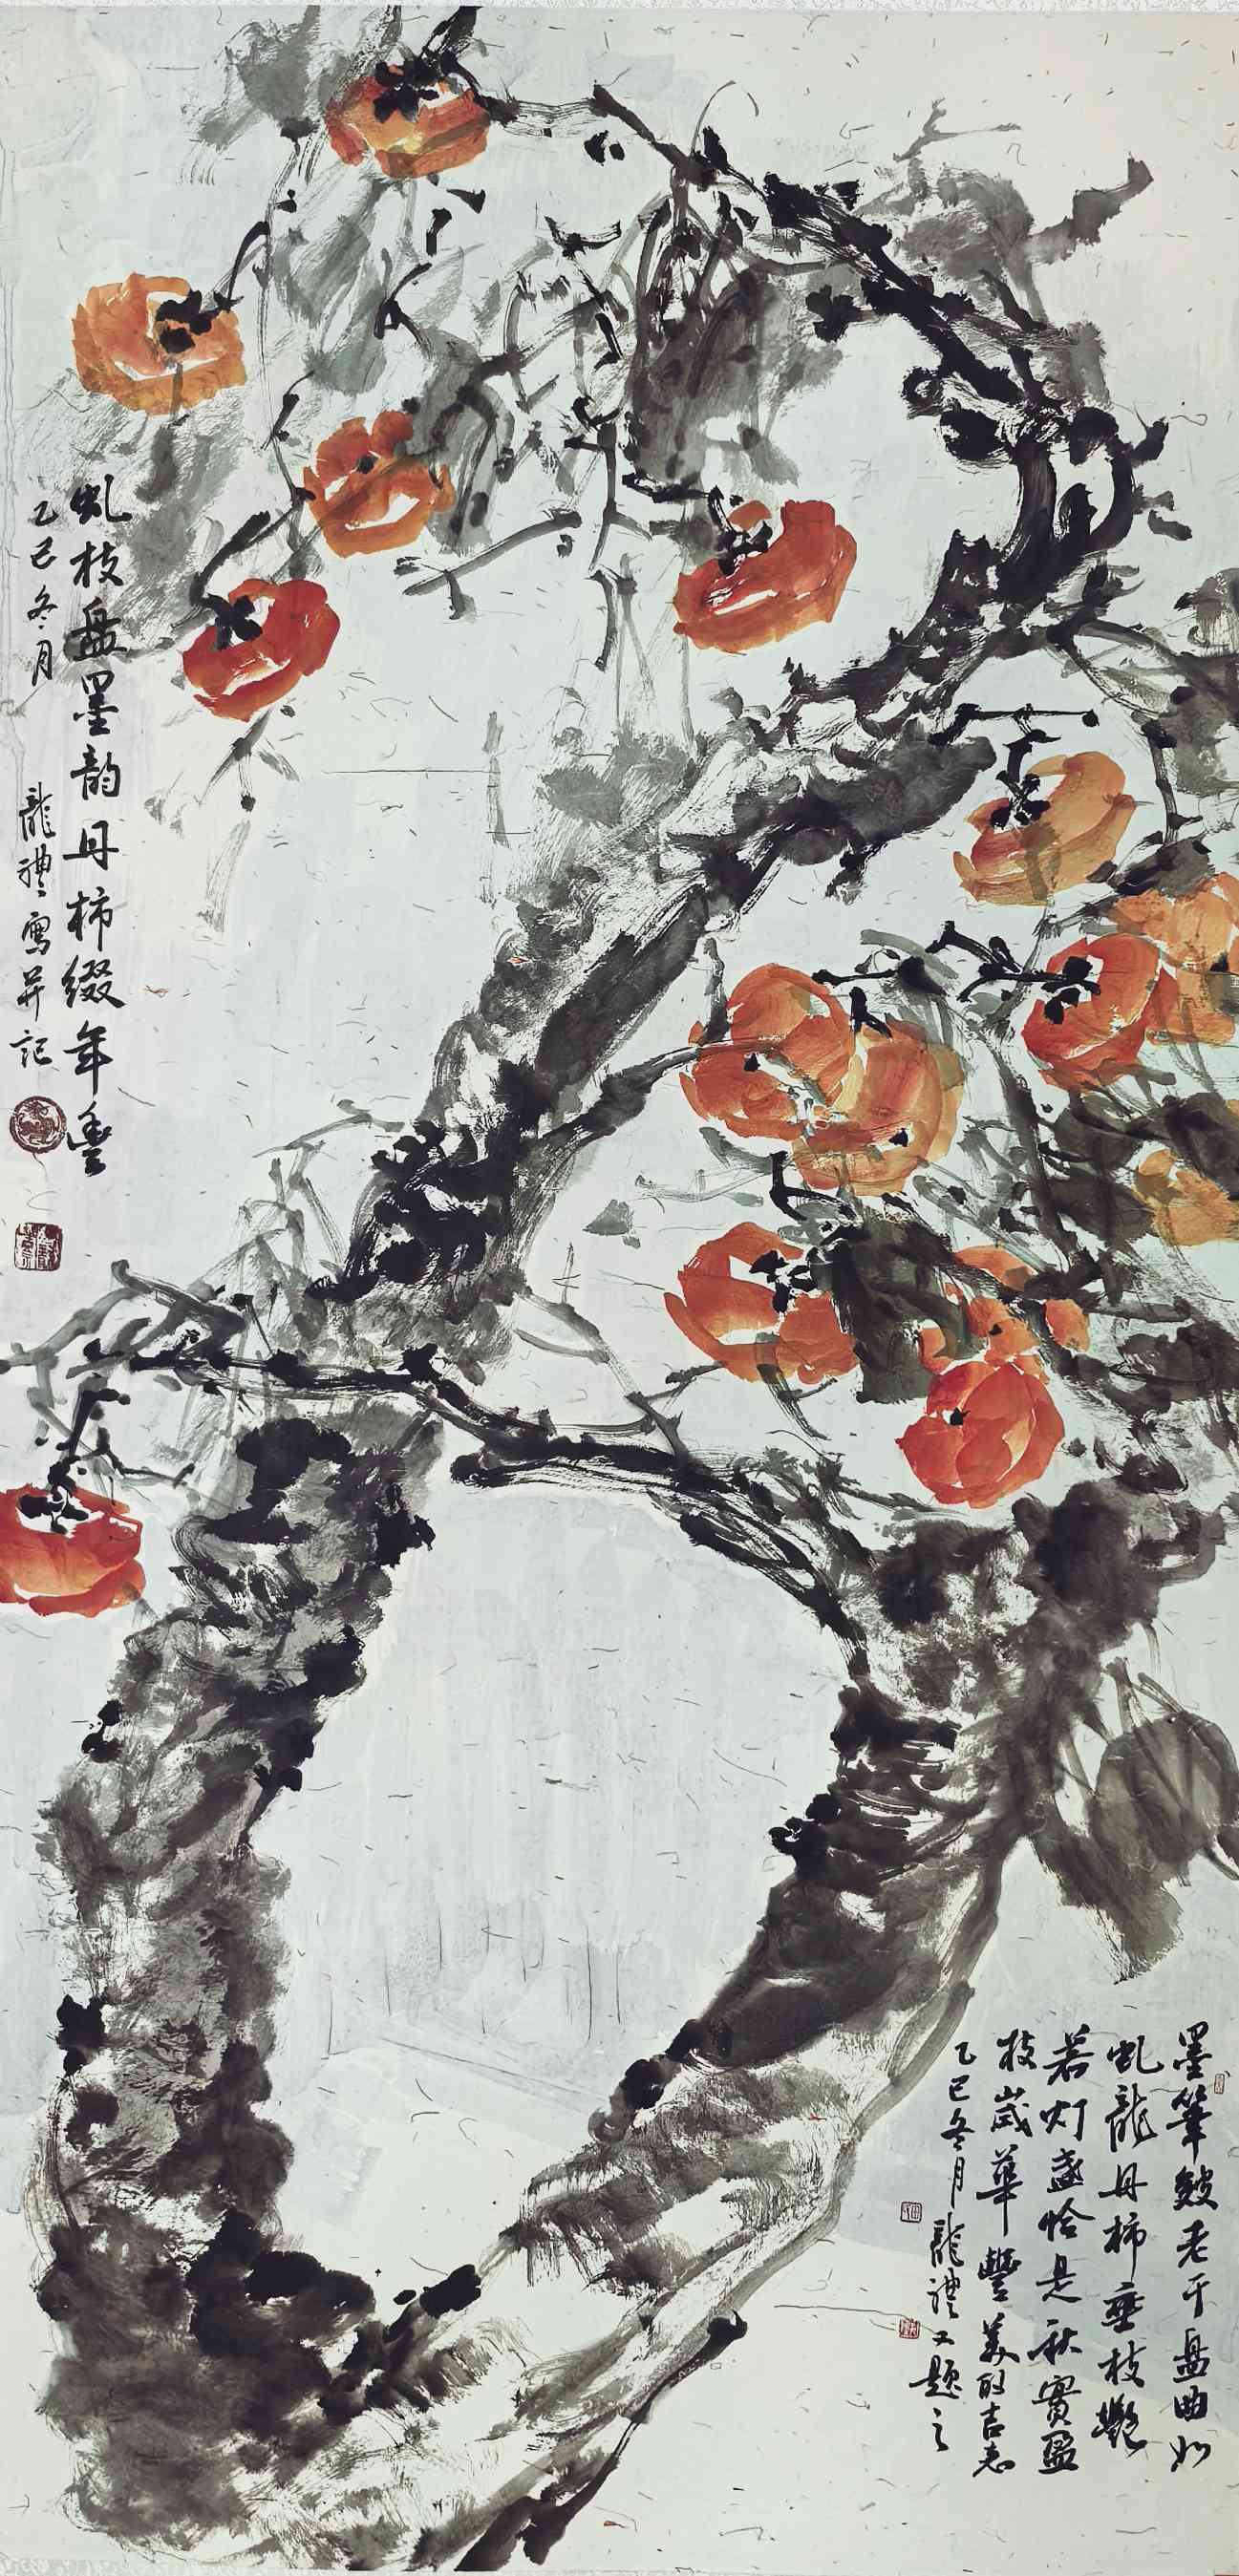 虬枝盘墨韵丹柿缀年丰
乙巳冬月 龍禮寫并記
墨筆皴老干盘曲如
虬龍丹柿垂枝艷
若灯盏恰是秋實盈
枝歲華豐美的吉志
乙巳冬月 龍禮又題之